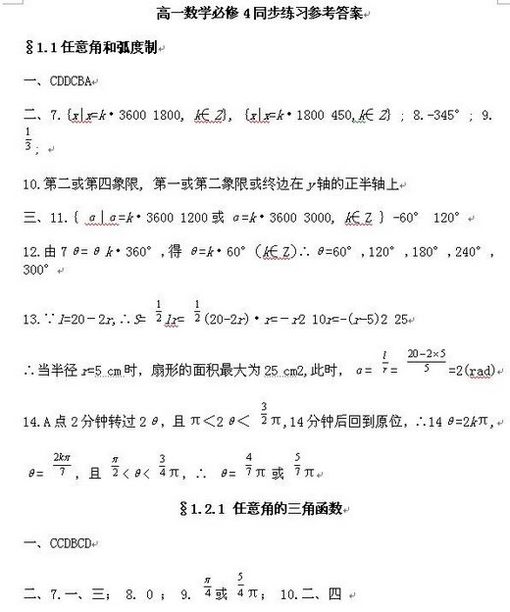 高一数学必修 4 同步练习参考答案
§1.1 任意角和弧度制
一、CDDCBA
二、7.{x|x=k•3600 1800, k∈Z}, {x|x=k•1800 450,k∈Z} ; 8.-345° ; 9.
1/3 ;
10.第二或第四象限, 第一或第二象限或终边在 y 轴的正半轴上
三、11.{ α|α=k•3600 1200 或 α=k•3600 3000, k∈Z } -60° 120°
12.由 7θ=θ k•360° ,得 θ=k•60° (k∈Z)∴ θ=60° ,120° ,180° ,240° ,
300°
13.∵l=20-2r,∴S= 1/2 lr= 1/2 (20-2r)•r=-r2 10r=-(r-5)2 25
∴当半径 r=5 cm 时, 扇形的面积最大为 25 cm2,此时, α= l/r = 20-2×5/5 =2(rad)
14.A 点 2 分钟转过 2θ, 且 π<2θ< 3/2 π,14 分钟后回到原位, ∴14θ=2kπ,
θ= 2kπ/7 , 且 π/2 <θ< 3/4 π, ∴ θ= 4/7 π 或 5/7 π
§1.2.1 任意角的三角函数
一、CCDBCD
二、7.一、三; 8. 0 ; 9. π/4 或 5/4 π; 10.二、四